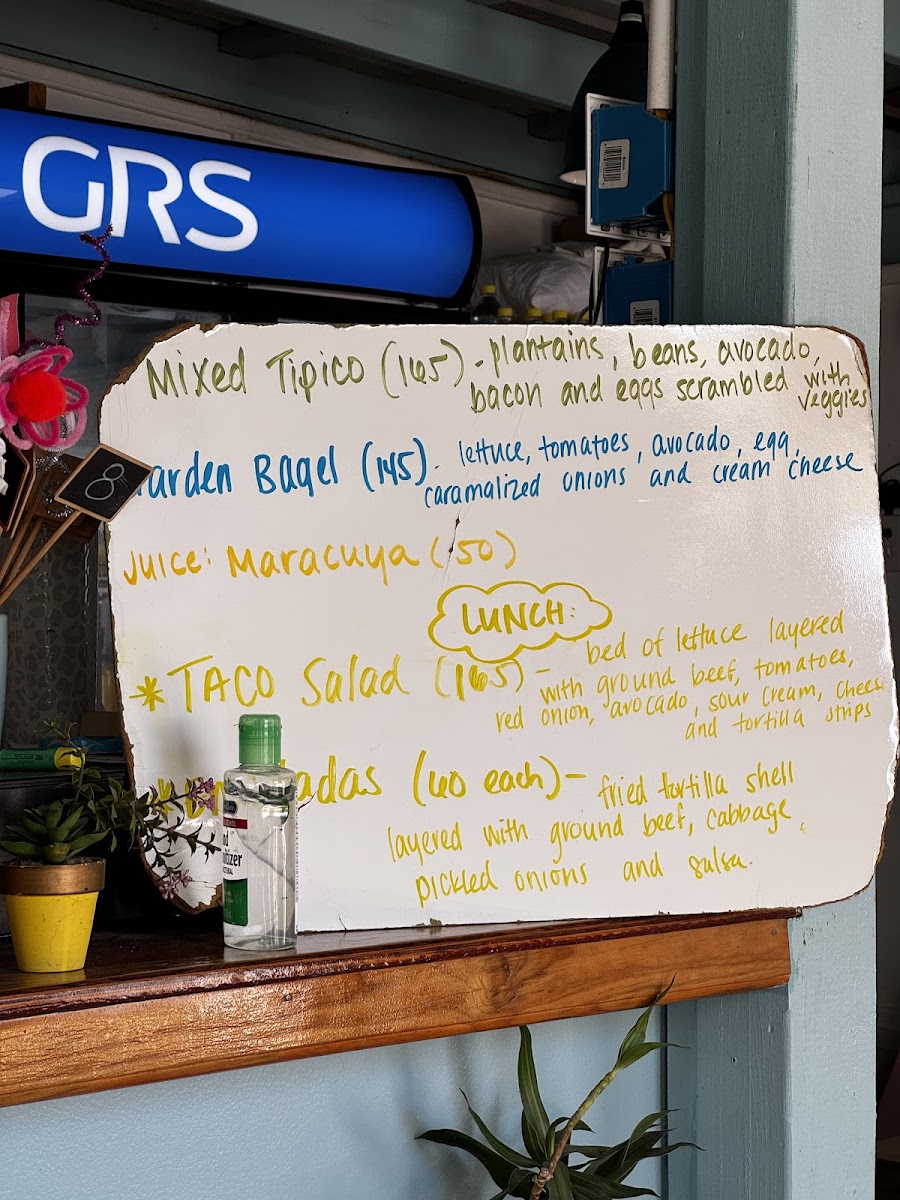 GRS
8
Mixed Tipico (165) - plantains, beans, avocado,
bacon and eggs scrambled with
veggies
arden Bagel (145) - lettuce, tomatoes, avocado, egg,
caramalized onions and cream cheese
Juice: Maracuya (50)
LUNCH:
*TACO Salad (165) - bed of lettuce layered
with ground beef, tomatoes,
red onion, avocado, sour cream, cheese
and tortilla strips
adas (60 each) - fried tortilla shell
layered with ground beef, cabbage,
pickled onions and salsa.